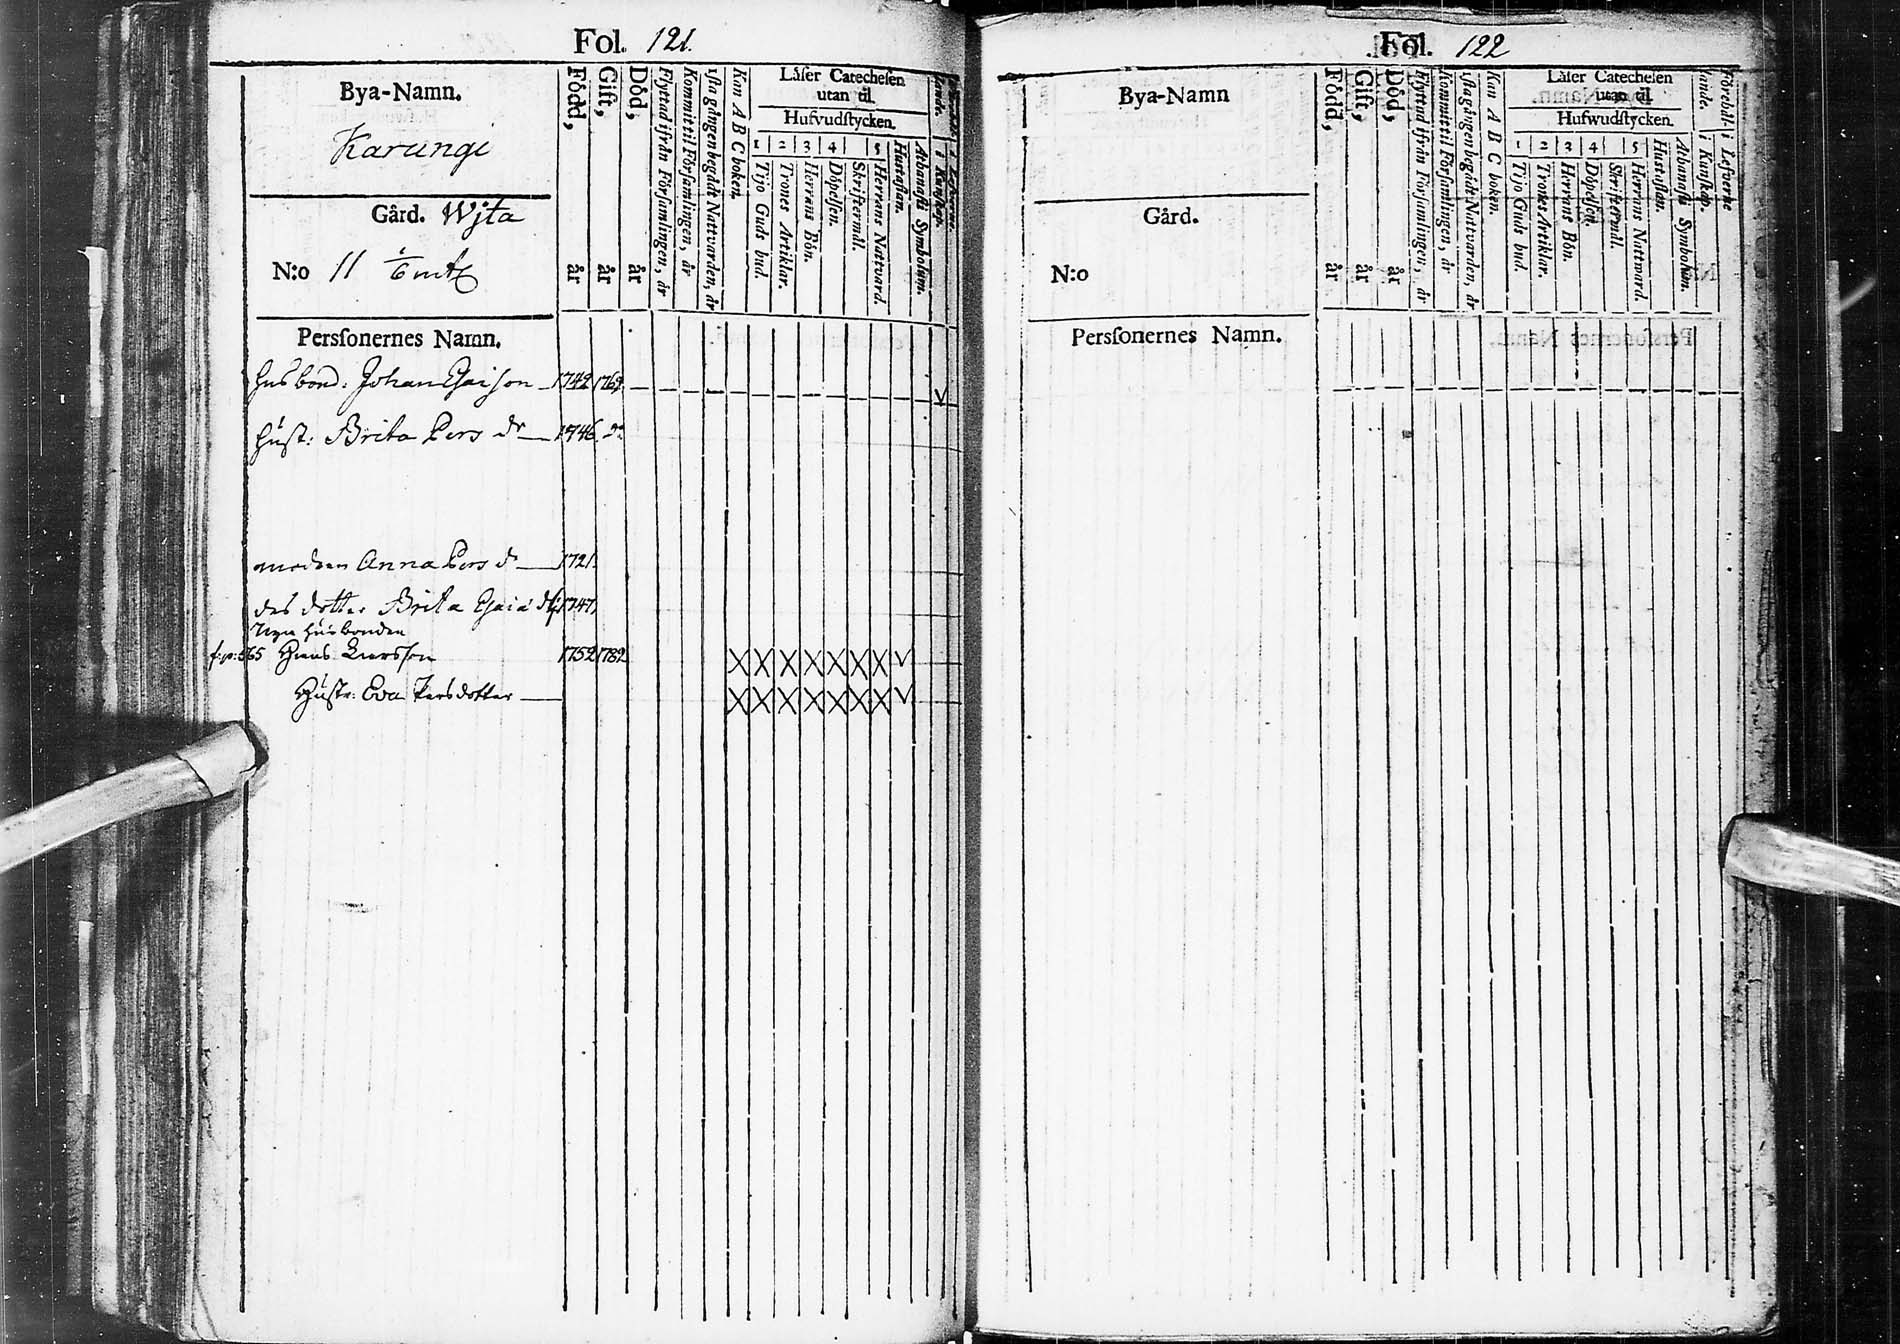 Fol. 121.
Bya-Namn.
Karungi
Gård. Wjta
N:o 11 1/6 mtl
Född, år
Gift, år
Död, år
Flyttad ifrån Församlingen, år
Kommit til Församlingen, år
1sta gången begådt Nattvarden, år
Kan A B C boken.
Låser Catechesen
utan til.
Hufvudstycken.
1 2 3 4 5
Tijo Guds bud.
Trones Artiklar.
Herrans Bön.
Döpelsen.
Skriftermål.
Herrans Nattvard.
Hustaflan.
Athanasii Symbolum.
Personernes Namn.
husbond: Johan Esaison 1742 1769
hust: Brita Pers dr 1746 do
modren Anna Pers dr 1721
des dotter Brita Esaiæ dtr 1747
Nya husbonden
f. p: 565 Hans Larsson 1752 1782 X X X X X X X V
Hustr: Eva Persdotter X X X X X X X V
Fol. 122
Bya-Namn
Gård.
N:o
Född, år
Gift, år
Död, år
Flyttad ifrån Församlingen, år
Kommit til Församlingen, år
1sta gången begådt Nattvarden, år
Kan A B C boken.
Låser Catechesen
utan til
Hufwudstycken.
1 2 3 4 5
Tijo Guds bud.
Trones Artiklar.
Herrans Bön.
Döpelsen.
Skriftermål.
Herrans Nattward.
Hustaflan.
Athanasii Symbolum.
i Kunskap.
i Lefverne
Personernes Namn.